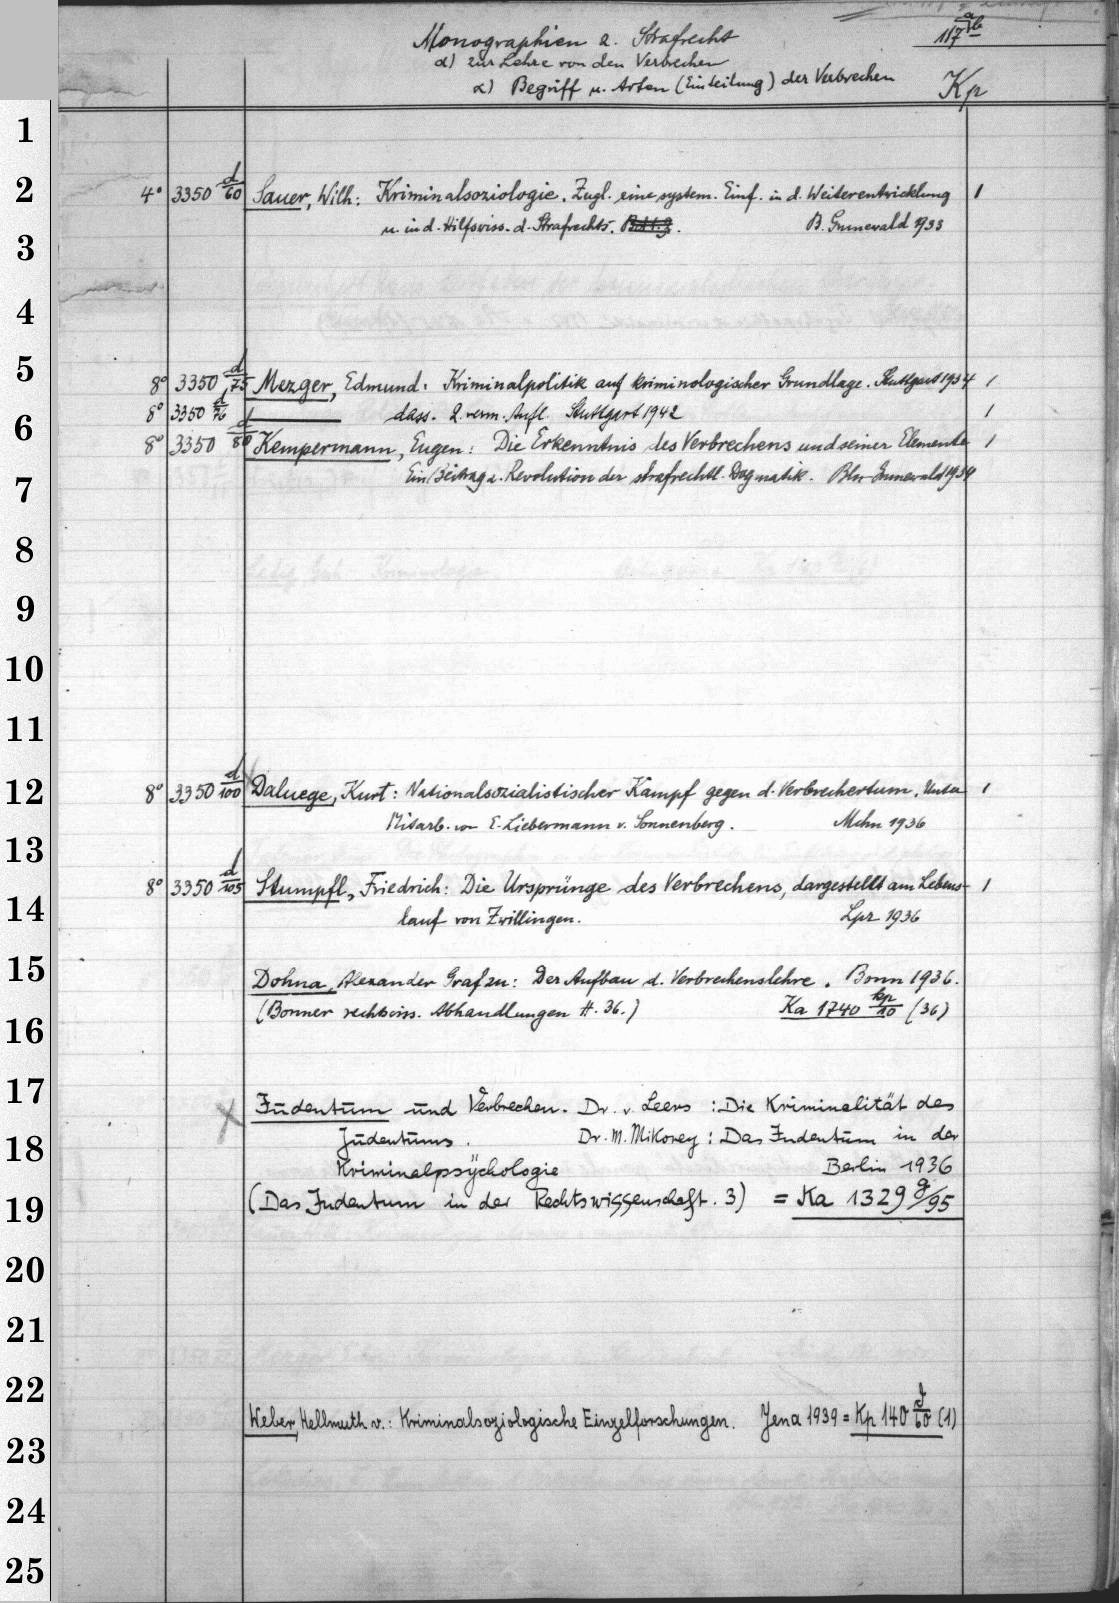 117 a/b
Monographien z. Strafrecht
d) zur Lehre von den Verbrechen
α) Begriff u. Arten (Einteilung) der Verbrechen
Kp
1
2 4° 3350 d/60 Sauer, Wilh: Kriminalsoziologie. Zugl. eine system. Einf. in d. Weiterentwicklung 1
u. in d. Hilfswiss. d. Strafrechts. B. Grunewald 1933
3
4
5 8° 3350 d/75 Mezger, Edmund: Kriminalpolitik auf kriminologischer Grundlage. Stuttgart 1934 1
8° 3350 d/76 ——— dass. 2. verm. Aufl. Stuttgart 1942 1
6 8° 3350 d/80 Kempermann, Eugen: Die Erkenntnis des Verbrechens und seiner Elemente 1
7 Ein Beitrag z. Revolution der strafrechtl. Dogmatik. Bln-Grunewald 1934
8
9
10
11
12 8° 3350 d/100 Daluege, Kurt: Nationalsozialistischer Kampf gegen d. Verbrechertum. Unter 1
Mitarb. von E. Liebermann v. Sonnenberg. Mchn 1936
13
8° 3350 d/105 Stumpfl, Friedrich: Die Ursprünge des Verbrechens, dargestellt am Lebens- 1
14 lauf von Zwillingen. Lpz 1936
15 Dohna, Alexander Graf zu: Der Aufbau d. Verbrechenslehre. Bonn 1936.
16 (Bonner rechtswiss. Abhandlungen H. 36.) Ka 1740 kp/10 (36)
17 Judentum und Verbrechen. Dr. v. Leers: Die Kriminalität des
18 Judentums. Dr. M. Mikorey: Das Judentum in der
Kriminalpsychologie Berlin 1936
19 (Das Judentum in der Rechtswissenschaft. 3) = Ka 1329 g/95
20
21
22
Weber, Hellmuth v.: Kriminalsoziologische Einzelforschungen. Jena 1939 = Kp 140 d/60 (1)
23
24
25